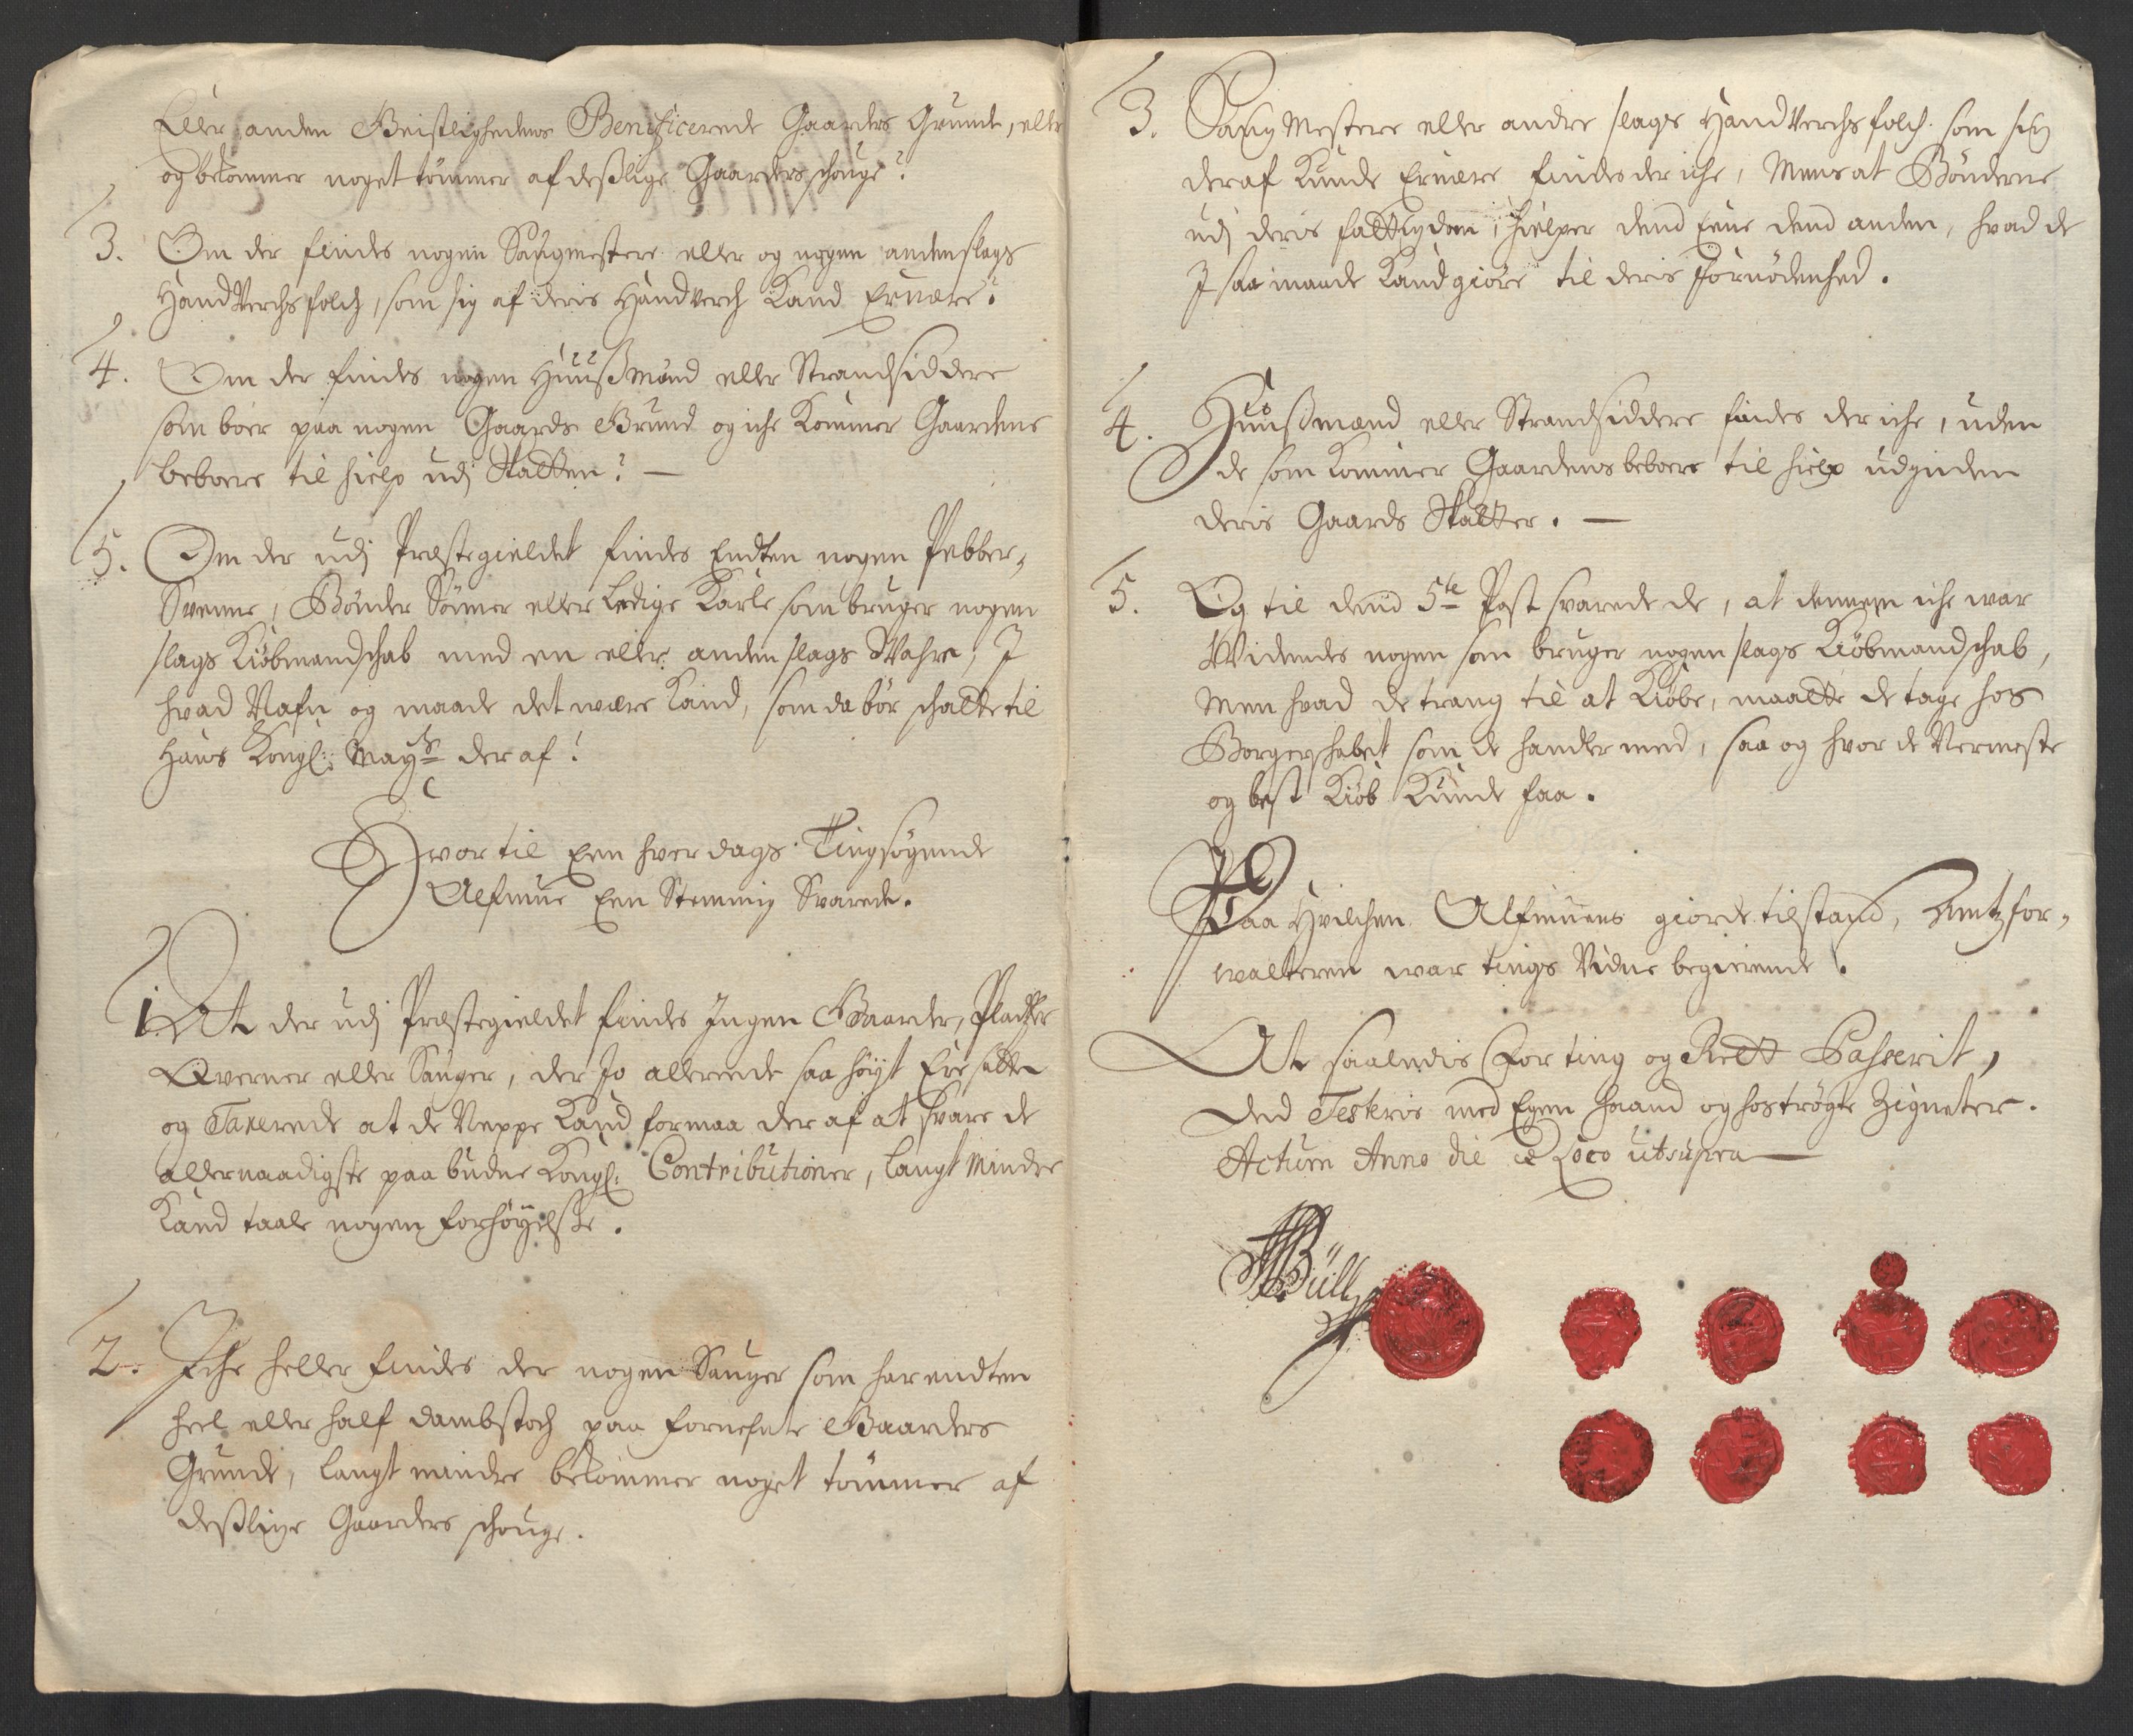 Eller anden Geistlighedens Beneficerede Gaarders Grunde, eller
og bekommer noget tømmer af deslige Gaarders schouge?
3. Om der findes nogen Saugmestere eller og nogen andenslags
Handverchsfolch, som sig af deris Handverch Kand Ernære?
4. Om der findes nogen Huusmænd eller Strandsiddere
som boer paa nogen Gaards Grund og iche Kommer Gaardens
beboere til hielp udj Skatten? —
5. Om der udj Præstegieldet findes Endten nogen Pebber-
Svenne, Bønder Sønner eller Ledige Karle som bruger nogen
slags Kiøbmandschab med en eller anden slags Wahre, I
hvad Nafn og maade det være Kand, som da bør schatte til
Hans Kongl: Mayts der af?
Hvortil Een hver dags Tingsøgende
Alfmue Een Stemmig Svarede.
1 At der udj Præstegieldet findes Ingen Gaarder, Pladtzer
Qverner eller Sauger, der Jo allereede saa høyt Ere satte
og Taxerede at de Neppe Kand formaa der af at svare de
allernaadigste paabudne Kongl: Contributioner, langt Mindre
Kand taale nogen forhøyelse.
2. Iche heller findes der nogen Sauger som har endten
heel eller half dambstoch paa fornefnte Gaarders
Grunde, langt mindre bekommer noget tømmer af
deslige Gaarders schouge.
3. Saug Mestere eller andre slags Handverchsfolch som sig
deraf Kunde Ernære findes der iche, Mens at Bønderne
udj deris fattigdom, hielper dend Eene dend anden, hvad de
I saa maade Kand giøre til deris Fornødenhed.
4. Huusmænd eller Strandsiddere findes der iche, uden
de som kommer Gaardens beboere til hielp udginden
deris Gaards Skatter. —
5. Og til dend 5te Post svarede de, at dennem iche war
Widendes nogen som bruger nogen slags Kiøbmandschab,
Men hvad de trang til at Kiøbe, maatte de tage hos
Borgerschabet som de handler med, saa og hvor de Nermeste
og best Kiøb Kunde faa.
Paa Hvilchen Alfmuens giorde tilstand, Amtzfor-
walteren war tings Vidne begierende.
At saaledis for ting og Rett Passerit,
Ded Testeris med Egen haand og hoströgte Zigneter.
Actum Anno die et Loco utsupra —
Büll